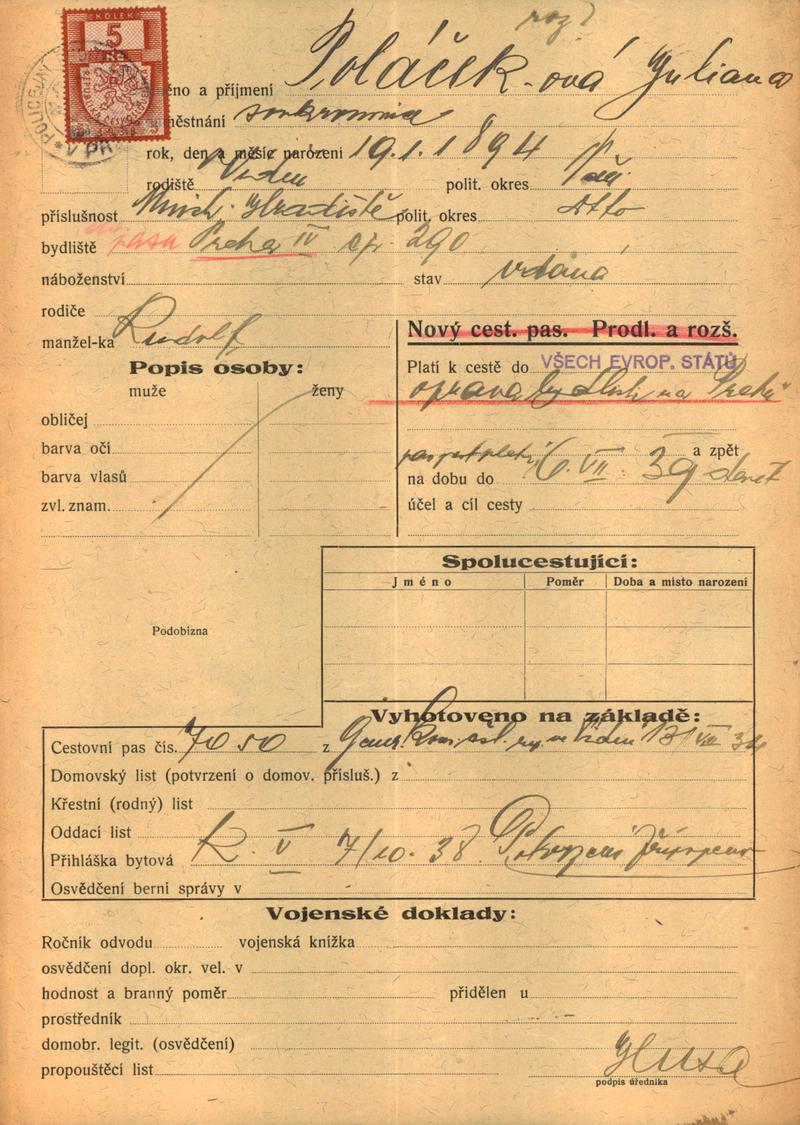 KOLEK
5
Kč
POLICEJNÍ
V PR
roz?
éno a příjmení Poláček-ová Juliana
městnání soukromnice
rok, den a měsíc narození 19.1.1894
rodiště Viden polit. okres
příslušnost Mnich. Hradiště polit. okres dtto
bydliště pasu Praha IV čp. 290
náboženství stav vdaná
rodiče
manžel-ka Rudolf
Nový cest. pas. Prodl. a rozš.
Popis osoby:
muže ženy
obličej
barva očí
barva vlasů
zvl. znam.
Platí k cestě do VŠECH EVROP. STÁTŮ
oprava bydliště na Prahu
a zpět
na dobu do 6. VII. 39
účel a cíl cesty
Spolucestující:
Jméno Poměr Doba a místo narození
Podobizna
Vyhotoveno na základě:
Cestovní pas čís. 7050 z Gener. kons. čsl. rep. ve Vídni
Domovský list (potvrzení o domov. přísluš.) z
Křestní (rodný) list
Oddací list
Přihláška bytová R. V 7/10. 38
Osvědčení berní správy v
Vojenské doklady:
Ročník odvodu vojenská knížka
osvědčení dopl. okr. vel. v
hodnost a branný poměr přidělen u
prostředník
domobr. legit. (osvědčení)
propouštěcí list
podpis úředníka